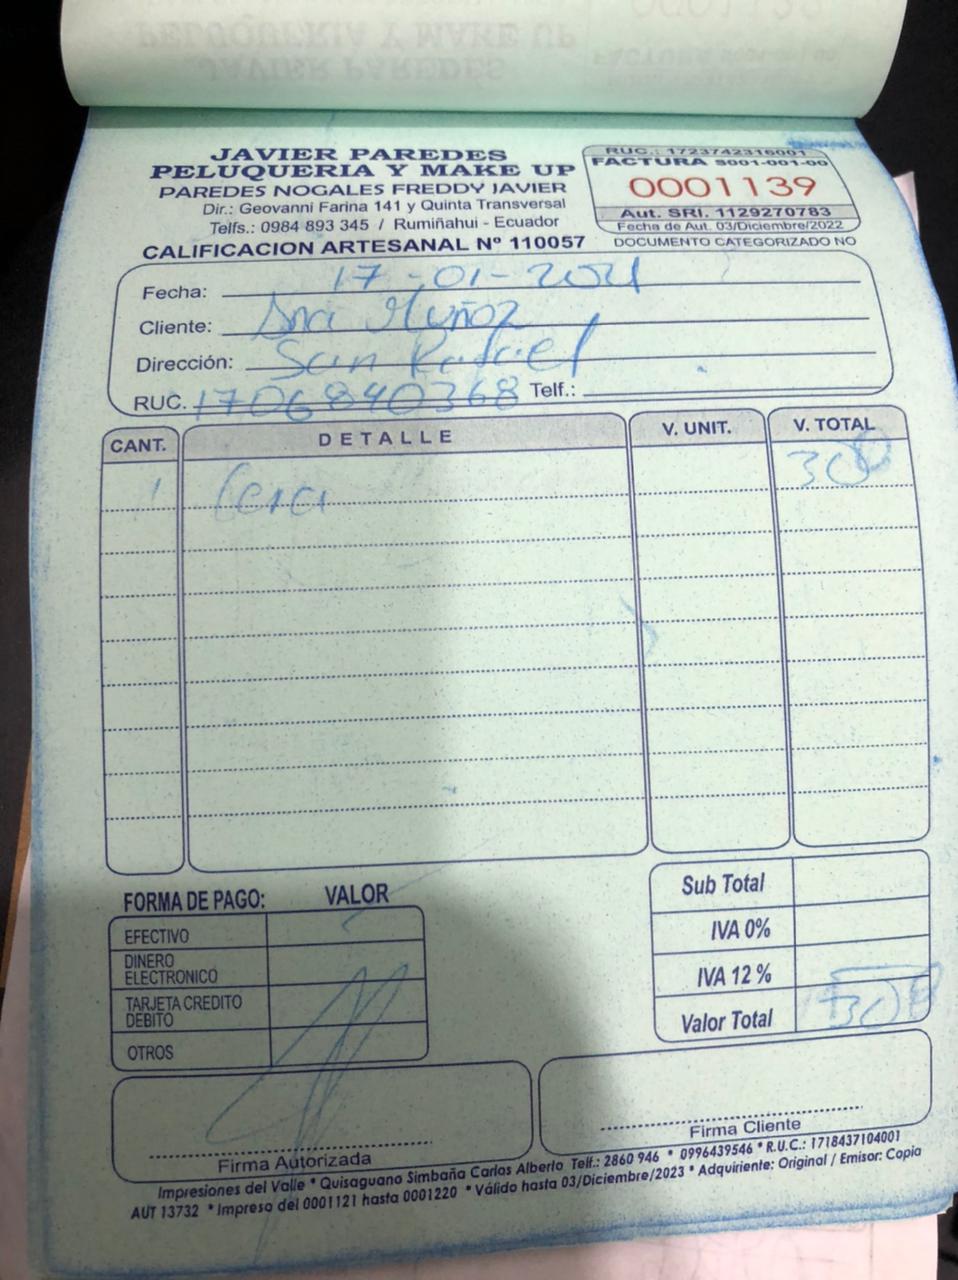 JAVIER PAREDES
PELUQUERIA Y MAKE UP
PAREDES NOGALES FREDDY JAVIER
Dir.: Geovanni Farina 141 y Quinta Transversal
Telfs.: 0984 893 345 / Rumiñahui - Ecuador
CALIFICACION ARTESANAL Nº 110057
RUC.: 1723742316001
FACTURA S001-001-00
0001139
Aut. SRI. 1129270783
Fecha de Aut. 03/Diciembre/2022
DOCUMENTO CATEGORIZADO NO
Fecha: 17-01-2021
Cliente: Muñoz
Dirección: San Rafael
RUC. 1706840368 Telf.:
CANT. DETALLE V. UNIT. V. TOTAL
1
FORMA DE PAGO: VALOR
EFECTIVO
DINERO
ELECTRONICO
TARJETA CREDITO
DEBITO
OTROS
Sub Total
IVA 0%
IVA 12 %
Valor Total
Firma Autorizada
Firma Cliente
Impresiones del Valle * Quisaguano Simbaña Carlos Alberto Telf.: 2860 946 * 0996439546 * R.U.C.: 1718437104001
AUT 13732 * Impreso del 0001121 hasta 0001220 * Válido hasta 03/Diciembre/2023 * Adquiriente: Original / Emisor: Copia